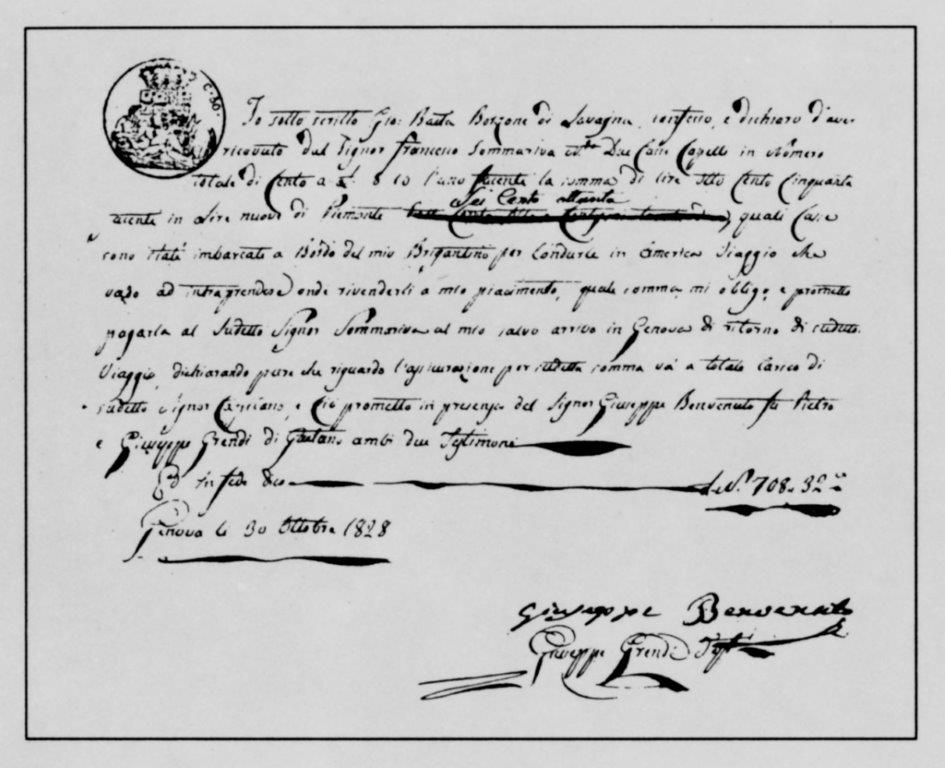 C. 50.
Io sotto scritto Gio: Batta Borzone di Lavagna, confesso, e dichiaro d'aver
ricevuto dal Signor Francesco Sommariva Due Casse Capelli in Numero
totale di Cento a 8 10 l'uno facente la somma di lire otto Cento Cinquanta
Sei Cento ottanta
facente in Lire nuove di Piemonte quali Casse
sono state imbarcate a Bordo del mio Brigantino per Condurle in America Viaggio che
vado ad intraprendere onde rivenderli a mio piacimento, quale somma, mi obligo, e prometto
pagarla al Sudetto Signor Sommariva al mio salvo arrivo in Genova di ritorno di sudetto
Viaggio, dichiarando pure che riguardo l'assicurazione per sudetta somma va a totale carico di
sudetto Signor e Ciò prometto in presenza del Signor Giuseppe Benvenuto fu Pietro
e Giuseppe Grendi di Gaetano ambi due Testimoni
Ed in fede &co L.N. 708. 32
Genova li 30 Ottobre 1828
Giuseppe Benvenuto
Giuseppe Grendi Test